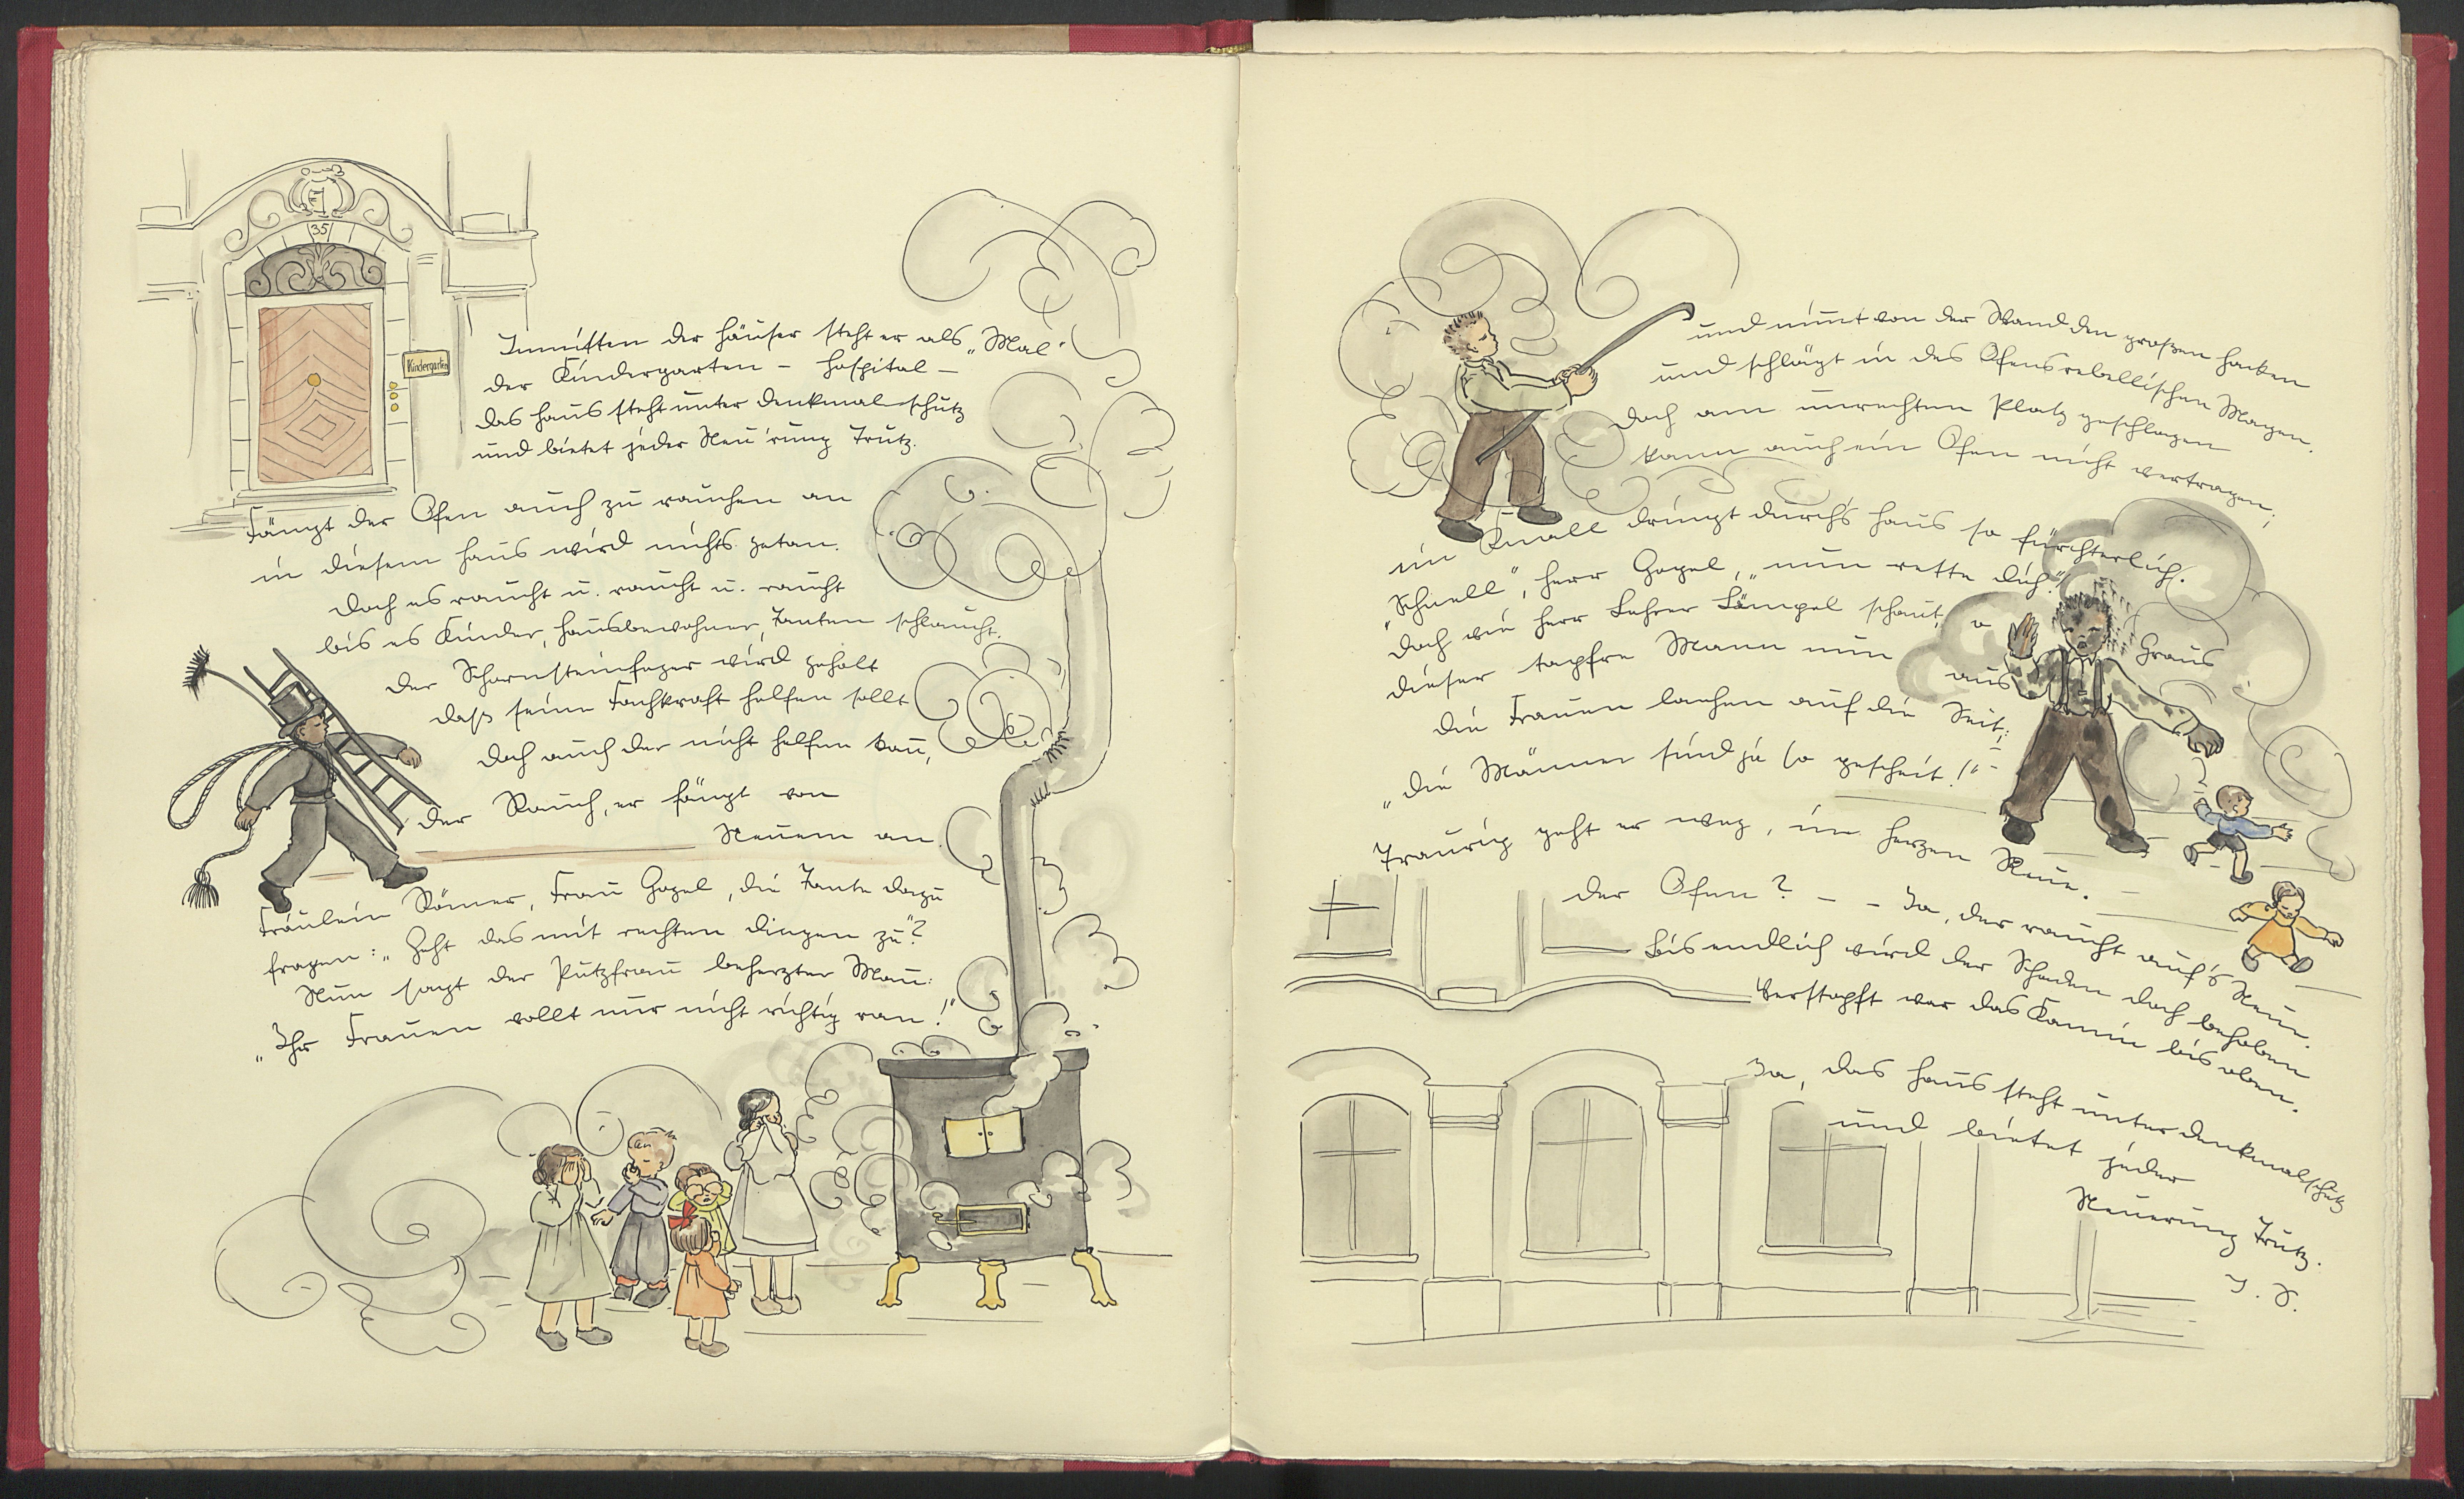 35
Kindergarten
Inmitten der Häuser steht er als „Mal"
der Kindergarten – Hospital –
das Haus steht unter Denkmalschutz
und bietet jeder Neu'rung Trutz.
Fängt der Ofen auch zu rauchen an
in diesem Haus wird nichts getan.
Doch es raucht u. raucht u. raucht
bis es Kinder, Hausbewohner, Tanten schlaucht.
Der Schornsteinfeger wird geholt
daß seine Fachkraft helfen sollt
doch auch der nicht helfen kann,
der Rauch, er fängt von
Neuem an.
Fräulein Römer, Frau Gogel, die Tante dazu
fragen: „Geht das mit rechten Dingen zu"?
Nun sagt der Putzfrau beherzter Mann:
„Ihr Frauen wollt nur nicht richtig ran!"
und nimt von der Wand den großen Hacken
und schlägt in des Ofens rebellischen Magen.
Doch am unrechten Platz geschlagen
kann auch ein Ofen nicht vertragen;
ein Knall dringt durch's Haus so fürchterlich.
„Schnell", Herr Gogel, „nun rette dich!"
Doch wie Herr Lehrer Lämpel schaut, o Graus
dieser tapfre Mann nun aus
die Frauen lachen auf die Seit;
„die Männer sind ja so gescheit!" –
Traurig geht er weg, im Herzen Reue.
Der Ofen? – – Ja, der raucht auf's Neue.
Bis endlich wird der Schaden doch behoben
Verstopft war das Kamin bis oben.
Ja, das Haus steht unter Denkmalschutz
und bietet jeder
Neuerung Trutz.